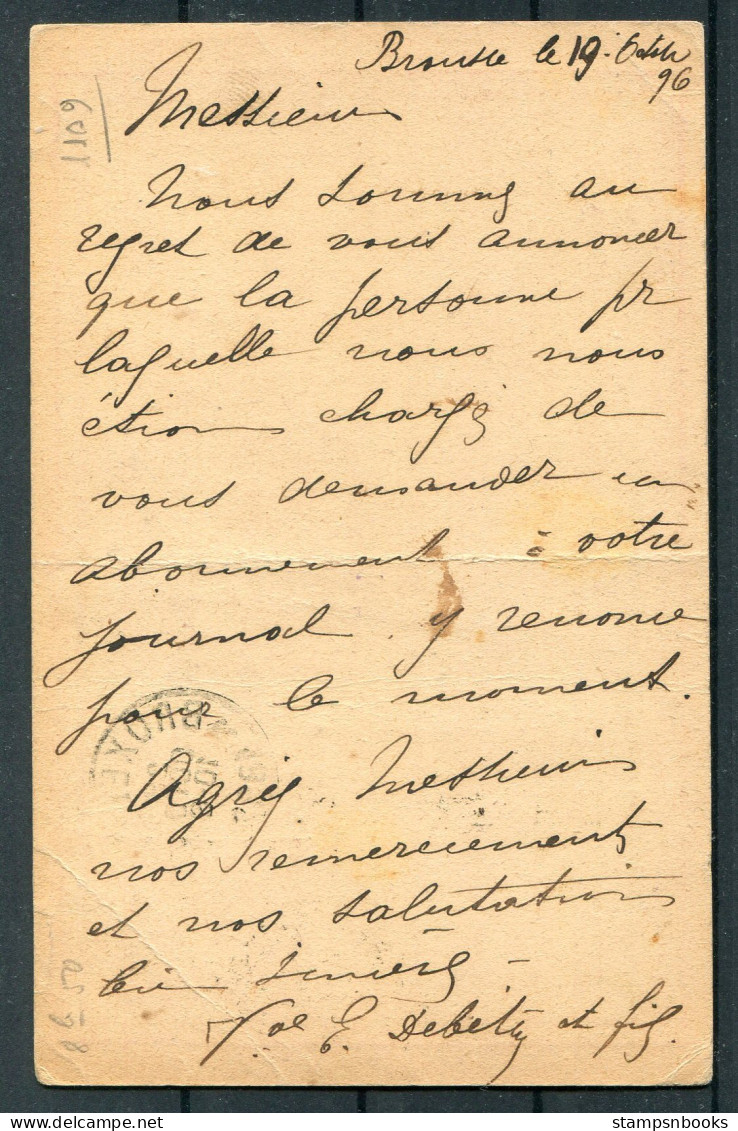 Brousse le 19 Octobr
96
Messieurs
Nous sommes au
regret de vous annoncer
que la personne pr
laquelle nous nous
étions chargés de
vous demander un
abonnement à votre
journal y renonce
pour le moment.
Agréez Messieurs
nos remerciements
et nos salutations
bien sincères
E. et fils.
1109
8650
BRUXE
stampsnbooks